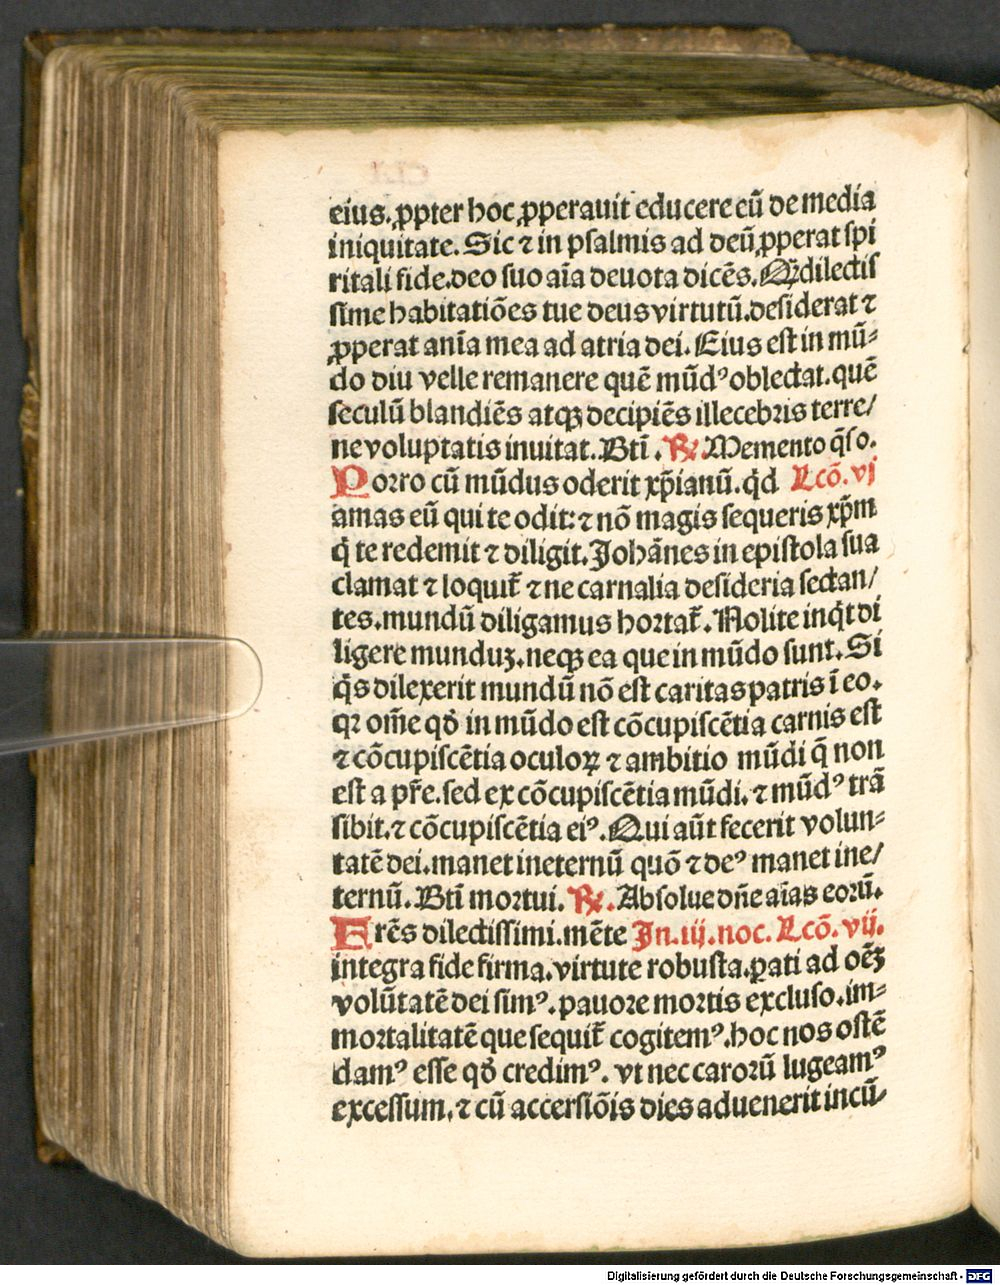 eius. ꝓpter hoc ꝓperauit educere eū de media
iniquitate. Sic ⁊ in psalmis ad deū ꝓperat spi
ritali fide. deo suo aīa deuota dicēs. Qͣꝫ dilectis
sime habitatiōes tue deus virtutū. desiderat ⁊
ꝓperat anīa mea ad atria dei. Eius est in mū⸗
do diu velle remanere quē mūdꝰ oblectat. quē
seculū blandiēs atqꝫ decipiēs illecebris terre/
ne voluptatis inuitat. Btī. ℟. Memento q̄so.
Porro cū mūdus oderit xp̄ianū. qͥd Lcō. vj
amas eū qui te odit: ⁊ nō magis sequeris xp̄m
qͥ te redemit ⁊ diligit. Johānes in epistola sua
clamat ⁊ loquit̄ ⁊ ne carnalia desideria sectan/
tes. mundū diligamus hortat̄. Nolite inqͥt di
ligere munduꝫ. neqꝫ ea que in mūdo sunt. Si
qͥs dilexerit mundū nō est caritas patris ī eo.
qꝛ om̄e qđ in mūdo est cōcupiscētia carnis est
⁊ cōcupiscētia oculoꝝ ⁊ ambitio mūdi q̄ non
est a pr̄e. sed ex cōcupiscētia mūdi. ⁊ mūdꝰ trā
sibit. ⁊ cōcupiscētia eiꝰ. Qui aūt fecerit volun⸗
tatē dei. manet ineternū quō ⁊ deꝰ manet ine/
ternū. Btī mortui. ℟. Absolue dn̄e aīas eorū.
Frēs dilectissimi. mēte Jn. iij. noc. Lcō. vij.
integra fide firma. virtute robusta. ꝑati ad oēꝫ
volūtatē dei simꝰ. pauore mortis excluso. im⸗
mortalitatē que sequit̄ cogitemꝰ. hoc nos ostē
damꝰ esse qđ credimꝰ. vt nec carorū lugeamꝰ
excessum. ⁊ cū accersiōis dies aduenerit incū⸗
Digitalisierung gefördert durch die Deutsche Forschungsgemeinschaft - DFG